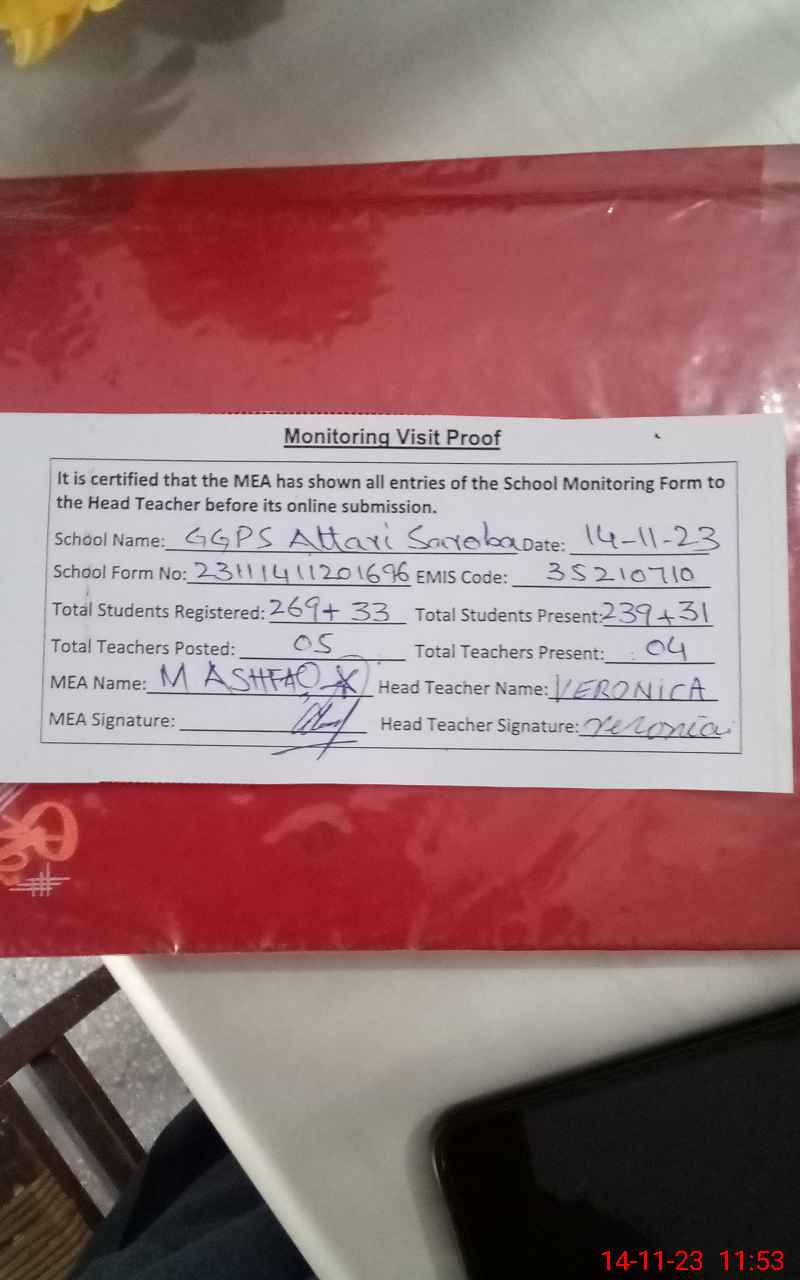 Monitoring Visit Proof
It is certified that the MEA has shown all entries of the School Monitoring Form to
the Head Teacher before its online submission.
School Name: GGPS Attari Saroba Date: 14-11-23
School Form No: 23111411201696 EMIS Code: 35210710
Total Students Registered: 269+33 Total Students Present: 239+31
Total Teachers Posted: 05 Total Teachers Present: 04
MEA Name: M ASHFAQ Head Teacher Name: VERONICA
MEA Signature: Head Teacher Signature: Veronica
14-11-23 11:53